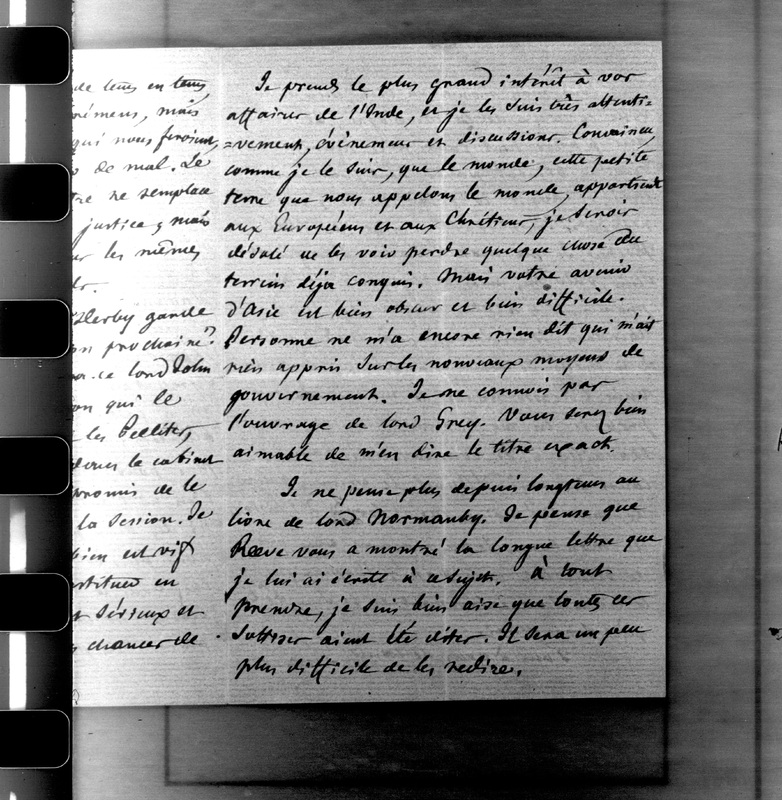 de tems en tems,
mais
qui nous feroient,
de mal. Le
ne remplace
justice, mais
les mêmes
Derby garde
prochaine?
lord John
qui le
les Peelites,
dans le cabinet
promis de le
la session. Je
bien est vif
en
sérieux et
chances de
Je prends le plus grand intérêt à vos
affaires de l'Inde, et je les suis très attenti=
=vement, évènemens et discussions. Convaincu,
comme je le suis, que le monde, cette petite
terre que nous appelons le monde, appartient
aux Européens et aux Chrétiens, je serois
désolé de les voir perdre quelque chose du
terrein déja conquis. Mais votre avenir
d'Asie est bien obscur et bien difficile.
Personne ne m'a encore rien dit qui m'ait
rien appris sur les nouveaux moyens de
gouvernement. Je ne connois pas
l'ouvrage de lord Grey. Vous serez bien
aimable de m'en dire le titre exact.
Je ne pense plus depuis longtems au
livre de lord Normanby. Je pense que
Reeve vous a montré la longue lettre que
je lui ai écrite à ce sujet. à tout
prendre, je suis bien aise que toutes ces
sottises aient été dites. Il sera un peu
plus difficile de les redire.